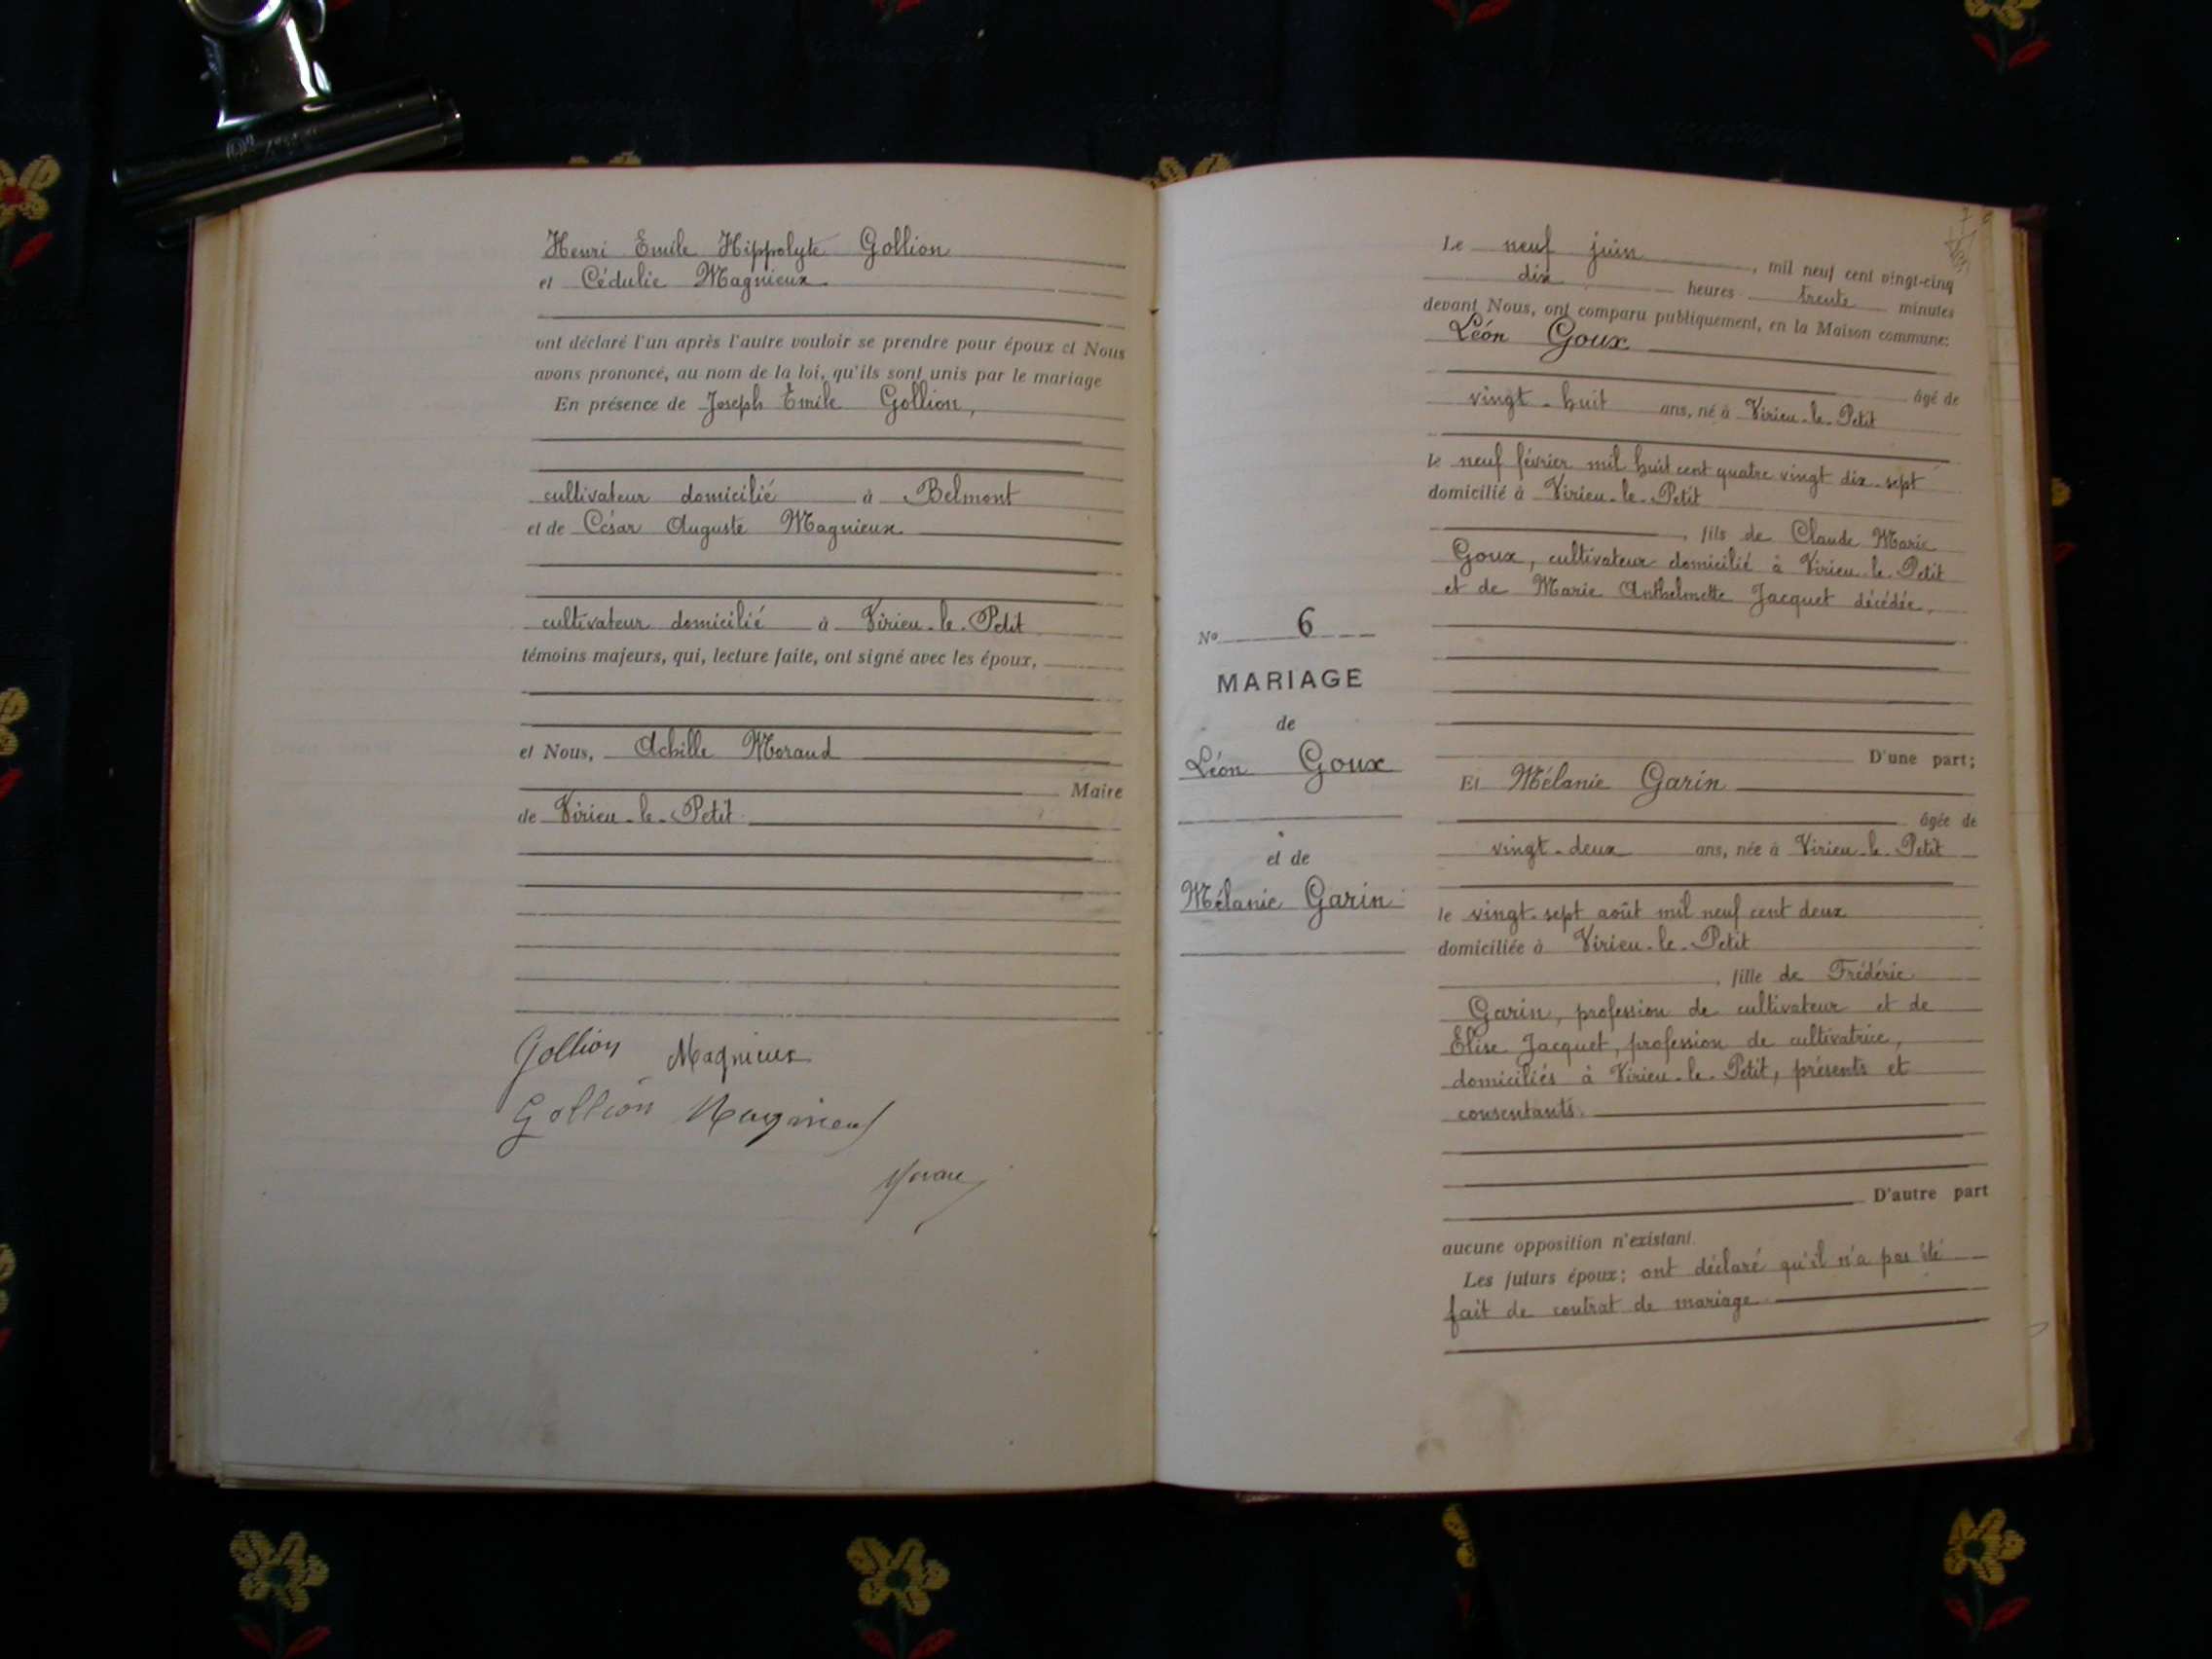 Henri Emile Hippolyte Gollion
et Cédulie Magnieux
ont déclaré l'un après l'autre vouloir se prendre pour époux et Nous
avons prononcé, au nom de la loi, qu'ils sont unis par le mariage
En présence de Joseph Emile Gollion,
cultivateur domicilié à Belmont
et de César Auguste Magnieux
cultivateur domicilié à Virieu-le-Petit
témoins majeurs, qui, lecture faite, ont signé avec les époux,
et Nous, Achille Moraud
Maire
de Virieu-le-Petit
Gollion Magnieux
Gollion Magnieux
No 6
MARIAGE
de
Léon Goux
et de
Mélanie Garin
Le neuf juin, mil neuf cent vingt-cinq
dix heures trente minutes
devant Nous, ont comparu publiquement, en la Maison commune:
Léon Goux
âgé de
vingt-huit ans, né à Virieu-le-Petit
le neuf février mil huit cent quatre vingt dix-sept
domicilié à Virieu-le-Petit
, fils de Claude Marie
Goux, cultivateur domicilié à Virieu-le-Petit
et de Marie Anthelmette Jacquet décédée,
D'une part;
Et Mélanie Garin
âgée de
vingt-deux ans, née à Virieu-le-Petit
le vingt-sept août mil neuf cent deux
domiciliée à Virieu-le-Petit
, fille de Frédéric
Garin, profession de cultivateur et de
Elise Jacquet, profession de cultivatrice,
domiciliés à Virieu-le-Petit, présents et
consentants.
D'autre part
aucune opposition n'existant.
Les futurs époux; ont déclaré qu'il n'a pas été
fait de contrat de mariage